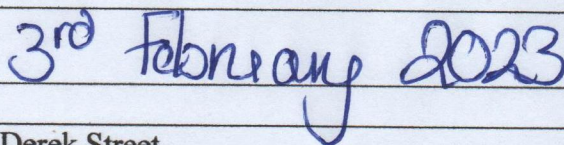 3rd February 2023
Derek Street